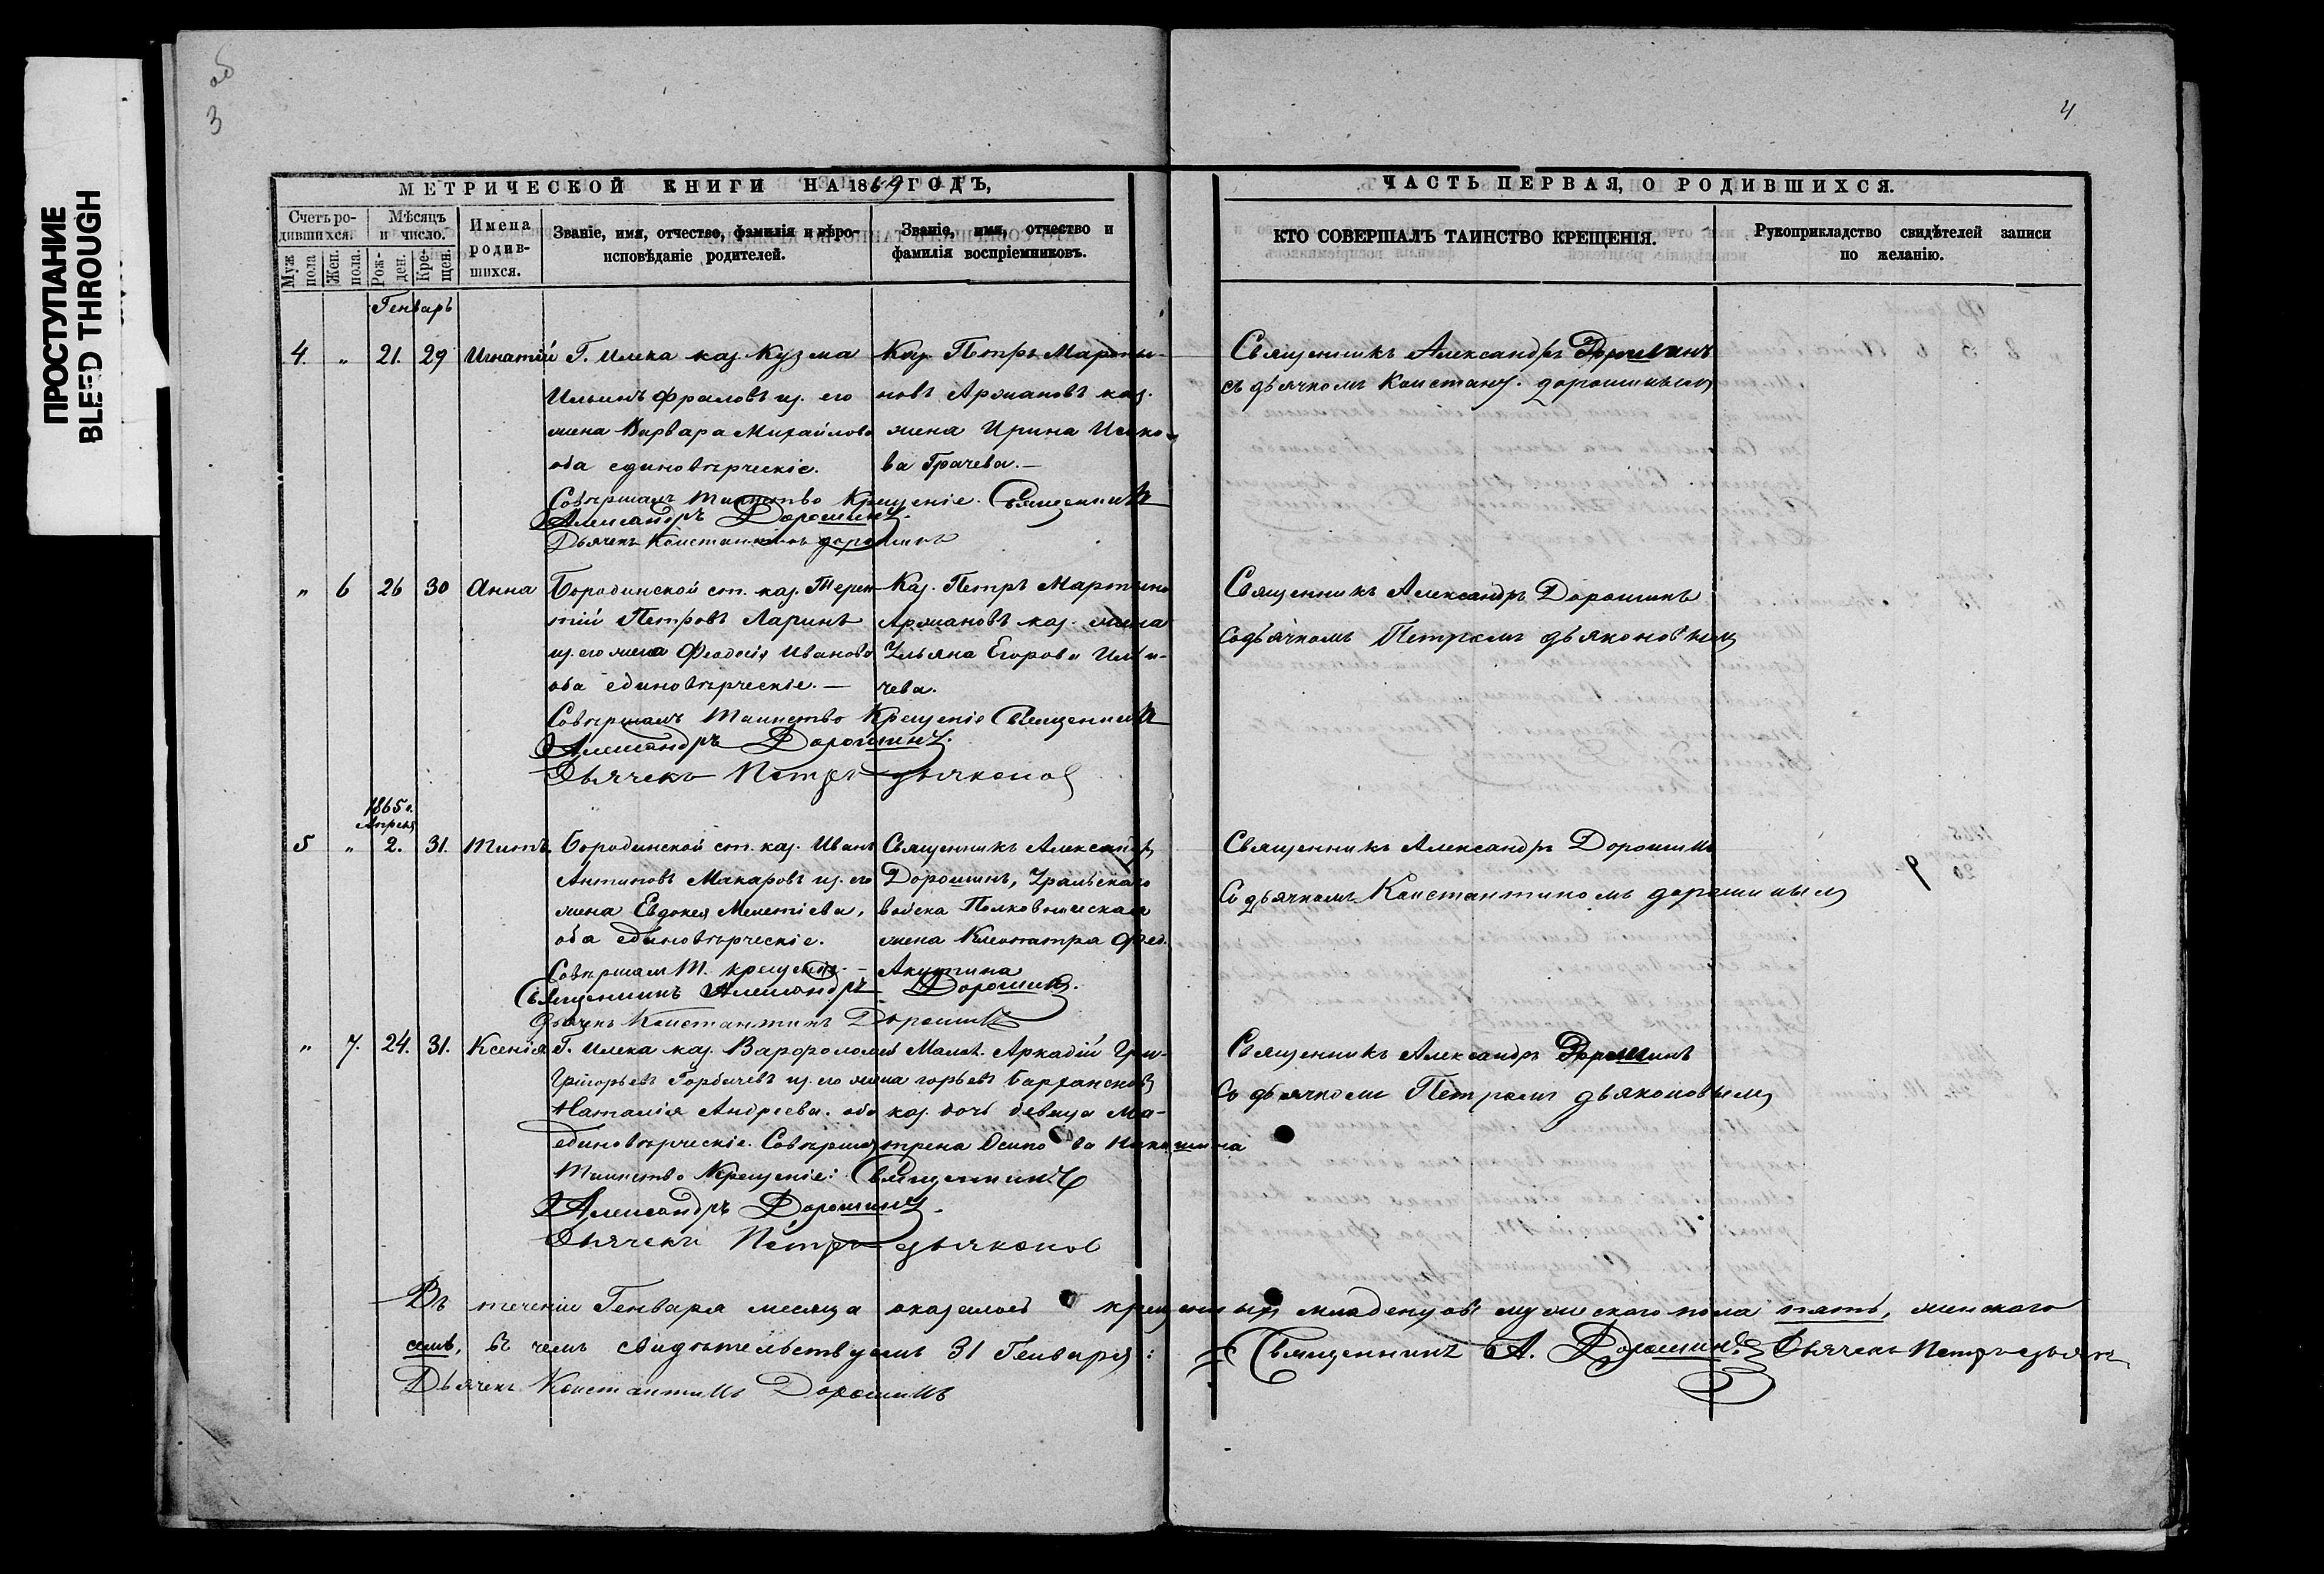 ПРОСТУПАНИЕ
BLEED THROUGH
об
3
4
МЕТРИЧЕСКОЙ КНИГИ НА 1869 ГОДЪ,
Счетъ ро-
дившихся.
Мѣсяцъ
и число.
Имена
родив-
шихся.
Званіе, имя, отчество, фамилія и вѣро-
исповѣданіе родителей.
Званіе, имя, отчество и
фамилія воспріемниковъ.
Муж
пола
Жен.
пола.
Рож-
ден.
Кре-
щен.
ЧАСТЬ ПЕРВАЯ, О РОДИВШИХСЯ.
КТО СОВЕРШАЛЪ ТАИНСТВО КРЕЩЕНІЯ.
Рукоприкладство свидѣтелей записи
по желанію.
Генварь
4. " 21. 29 Игнатій Г. Илека каз. Кузма
Ильинъ Фраловъ из. его
жена Варвара Михайлова
оба единовѣрческіе.
Каз. Петръ Марты-
новъ Аржановъ каз.
жена Ирина Исако-
ва Грачева.—
Совершалъ Таинство Крещеніе. Священникъ
Александръ Дорошинъ.
Дьячекъ Константинъ дорошинъ
Священникъ Александръ Дорошинъ
съ дьячкомъ Констант. дорошинымъ
" 6 26 30 Анна Бородинской ст. каз. Терен-
тій Петровъ Ларинъ
из. его жена Феодосія Иванова
оба единовѣрческіе.—
Каз. Петръ Мартыно
Аржановъ каз. жена
Ульяна Егорова
чева.
Совершалъ Таинство Крещеніе Священникъ
Александръ Дорошинъ.
Дьячекъ Петръ дьяконов
Священникъ Александръ Дорошинъ
Содьячкомъ Петромъ дьяконовымъ
1865 г.
Апреля
5 " 2. 31. Титъ. Бородинской ст. каз. Иванъ
Антиповъ Макаровъ из. его
жена Евдокея Мелетіева,
оба единовѣрческіе.
Священникъ Александръ
Дорошинъ, Уральскаго
войска Полковническая
жена Клеопатра Фед.
Акутина
Совершал Т. крещеніе.—
Священникъ Александръ Дорошинъ.
Дьячекъ Константинъ Дорошинъ
Священникъ Александръ Дорошинъ
Со дьячкомъ Константиномъ дорошинымъ
" 7. 24. 31. Ксенія Г. Илека каз. Варфоломей
Григорьевъ Горбачевъ из. его жена
Наталія Андреева. оба
единовѣрческіе. Совершалъ
Малол. Аркадій Гри-
горьевъ
каз. дочь девица Ма-
трена Осипова
Таинство Крещеніе: Священникъ
Александръ Дорошинъ.
Дьячекъ Петръ дьяконов
Священникъ Александръ Дорошинъ
Со дьячкомъ Петромъ дьяконовымъ
Въ теченіи Генваря месяца оказалось крещенныхъ младенцовъ мужескаго пола пять, женскаго
семь, въ чемъ свидѣтельствуемъ 31 Генваря: Священникъ А. Дорошинъ Дьячекъ Петръ
Дьячекъ Константинъ Дорошинъ